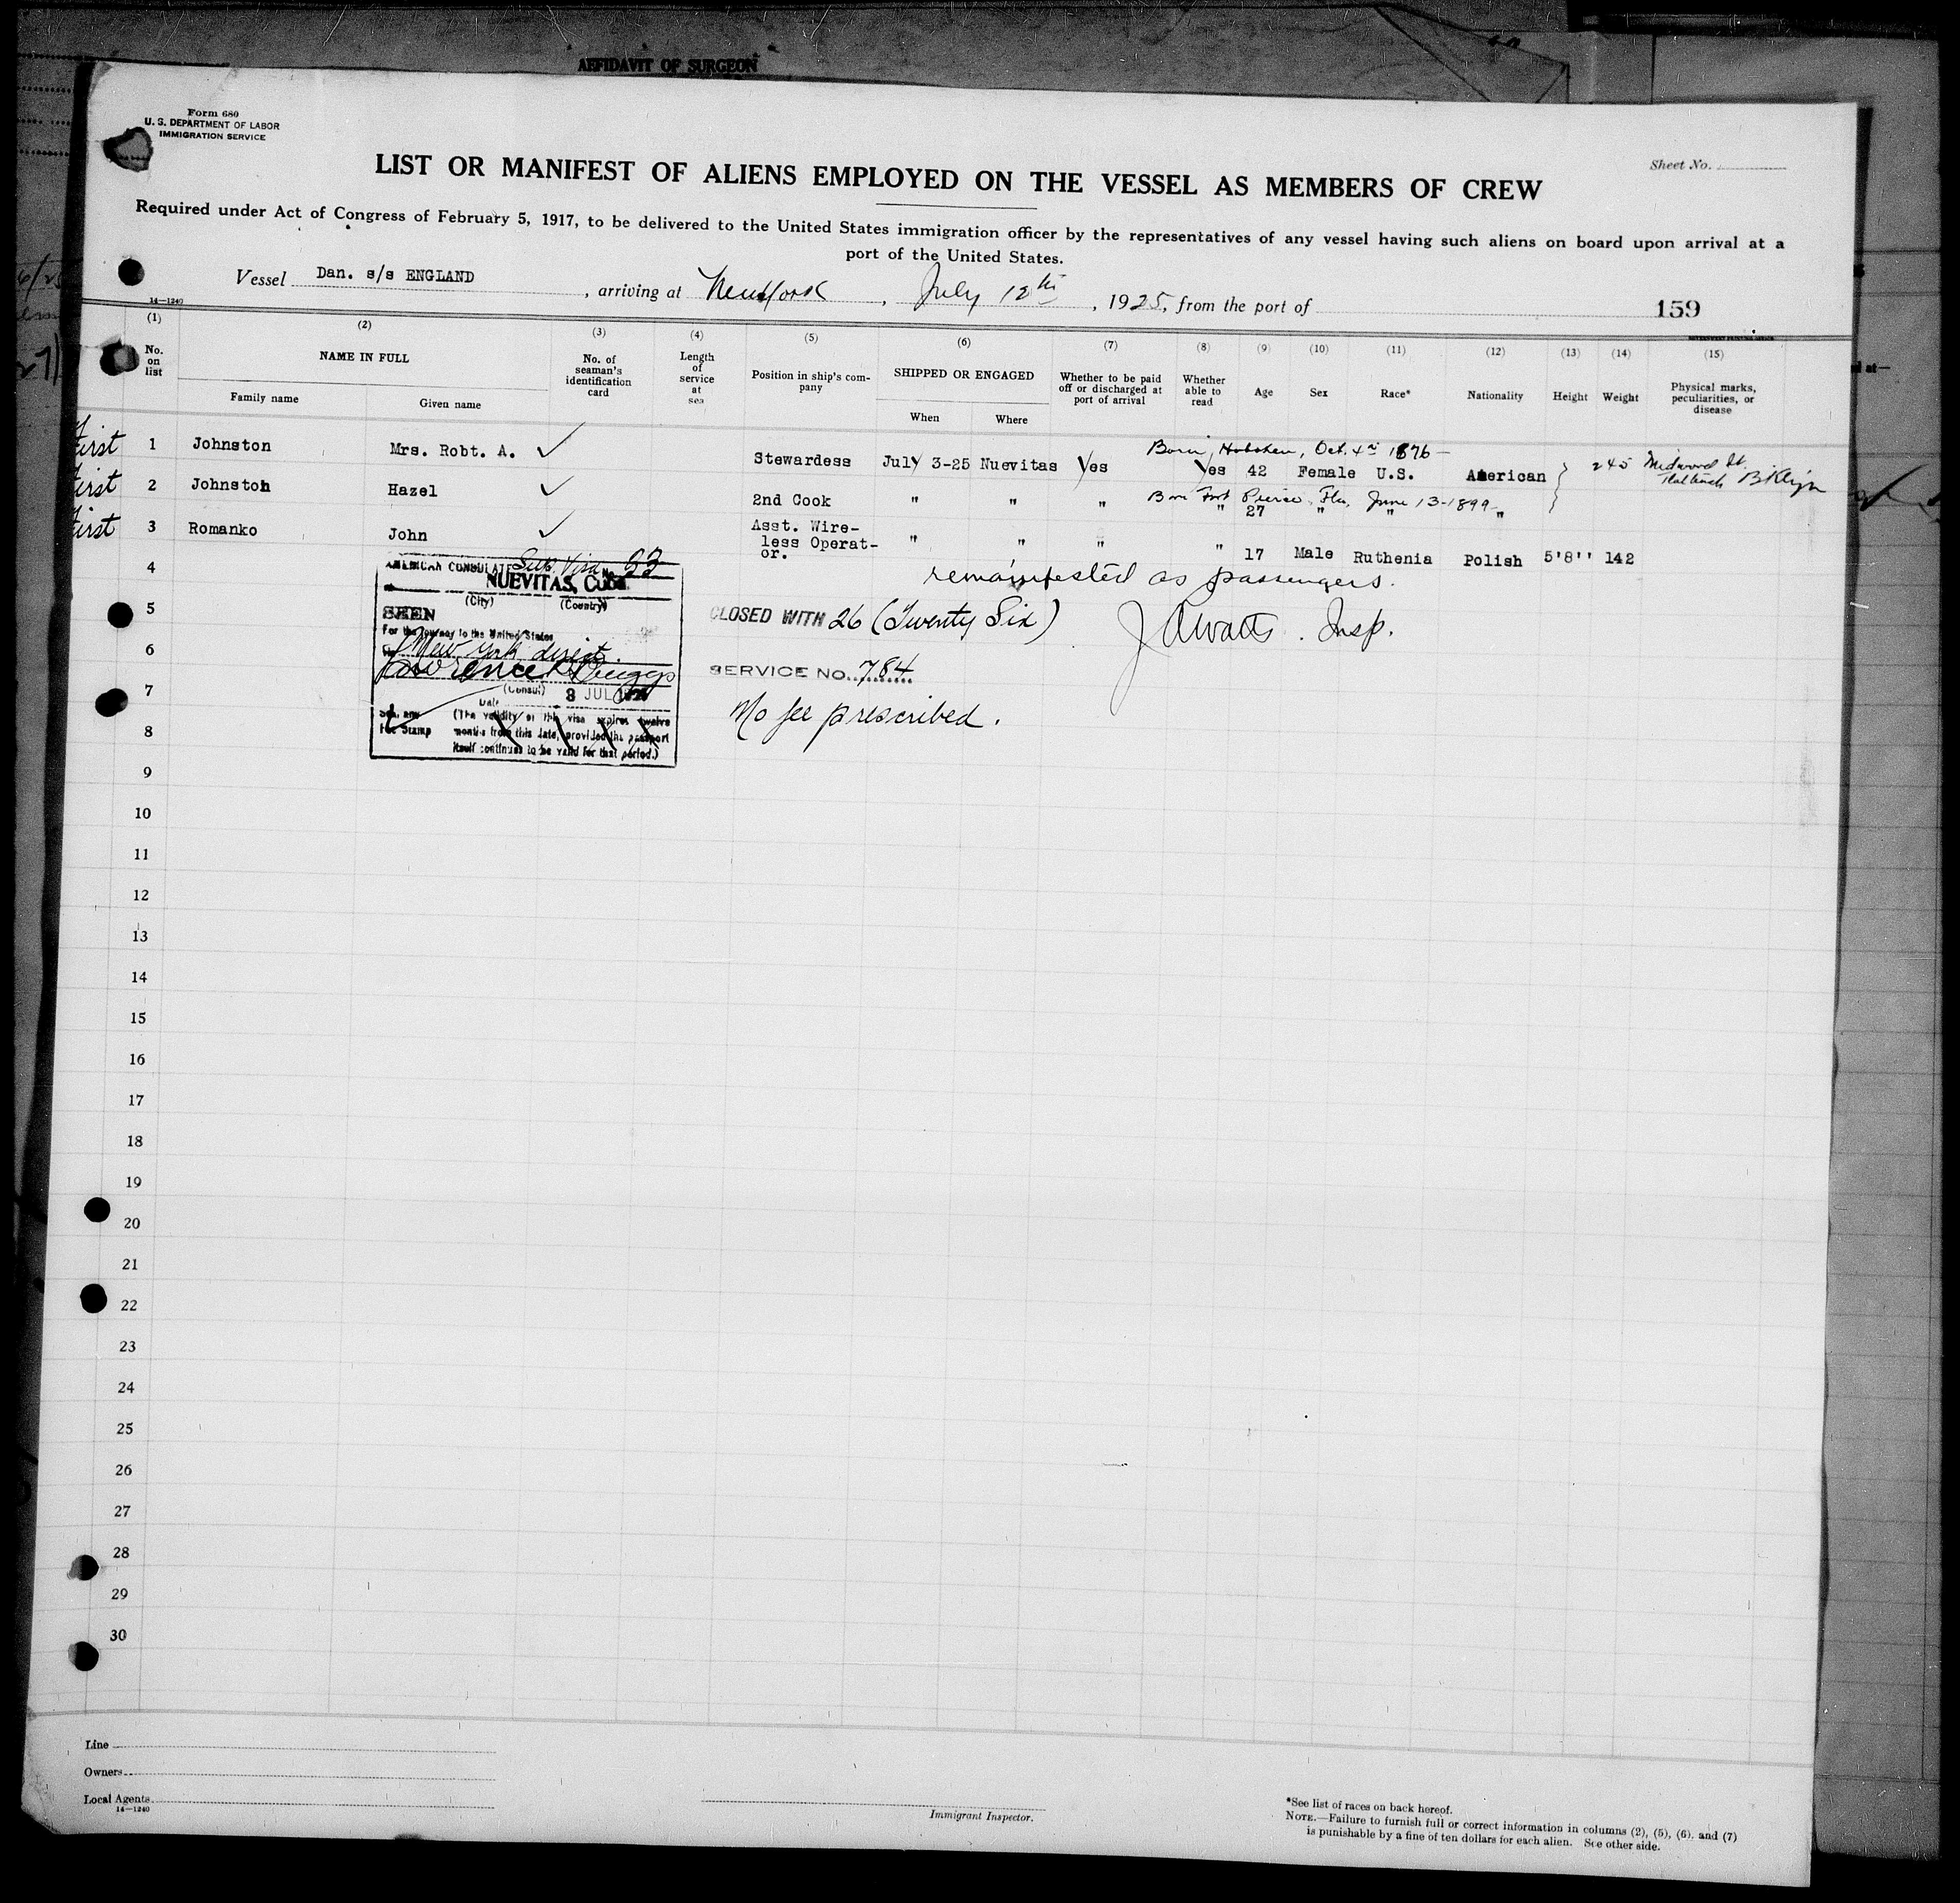 AFFIDAVIT OF SURGEON
Form 680
U. S. DEPARTMENT OF LABOR
IMMIGRATION SERVICE
Sheet No.
LIST OR MANIFEST OF ALIENS EMPLOYED ON THE VESSEL AS MEMBERS OF CREW
Required under Act of Congress of February 5, 1917, to be delivered to the United States immigration officer by the representatives of any vessel having such aliens on board upon arrival at a
port of the United States.
Vessel Dan. s/s ENGLAND, arriving at New York, July 12th, 1925, from the port of 159
14—1240
(1) (2) (3) (4) (5) (6) (7) (8) (9) (10) (11) (12) (13) (14) (15)
No. on list
NAME IN FULL
Family name
Given name
No. of seaman's identification card
Length of service at sea
Position in ship's company
SHIPPED OR ENGAGED
When
Where
Whether to be paid off or discharged at port of arrival
Whether able to read
Age
Sex
Race*
Nationality
Height
Weight
Physical marks, peculiarities, or disease
Born, Hoboken, Oct. 4th 1876—
First 1 Johnston Mrs. Robt. A. ✓ Stewardess July 3-25 Nuevitas Yes Yes 42 Female U.S. American 245 Midwood St. Flatbush Bklyn
Born Fort Pierce, Fla, June 13-1899
First 2 Johnston Hazel ✓ 2nd Cook " " " " 27 " " "
First 3 Romanko John ✓ Asst. Wire-
less Operat-
or. " " " " 17 Male Ruthenia Polish 5'8'' 142
4
remanifested as passengers.
AMERICAN CONSULATE Sup. Visa No. 23
NUEVITAS, Cuba
(City) (Country)
SEEN
For the journey to the United States
New York direct.
Lawrence Briggs
(Consul)
Date 3 JUL 1925
Fee Stamp
(The validity of this visa expires twelve
months from this date, provided the passport
itself continues to be valid for that period.)
CLOSED WITH 26 (Twenty Six)
J A Watts. Insp.
SERVICE NO. 784
No fee prescribed.
5
6
7
8
9
10
11
12
13
14
15
16
17
18
19
20
21
22
23
24
25
26
27
28
29
30
Line
Owners
Local Agents
14—1240
Immigrant Inspector.
*See list of races on back hereof.
NOTE.—Failure to furnish full or correct information in columns (2), (5), (6), and (7)
is punishable by a fine of ten dollars for each alien. See other side.